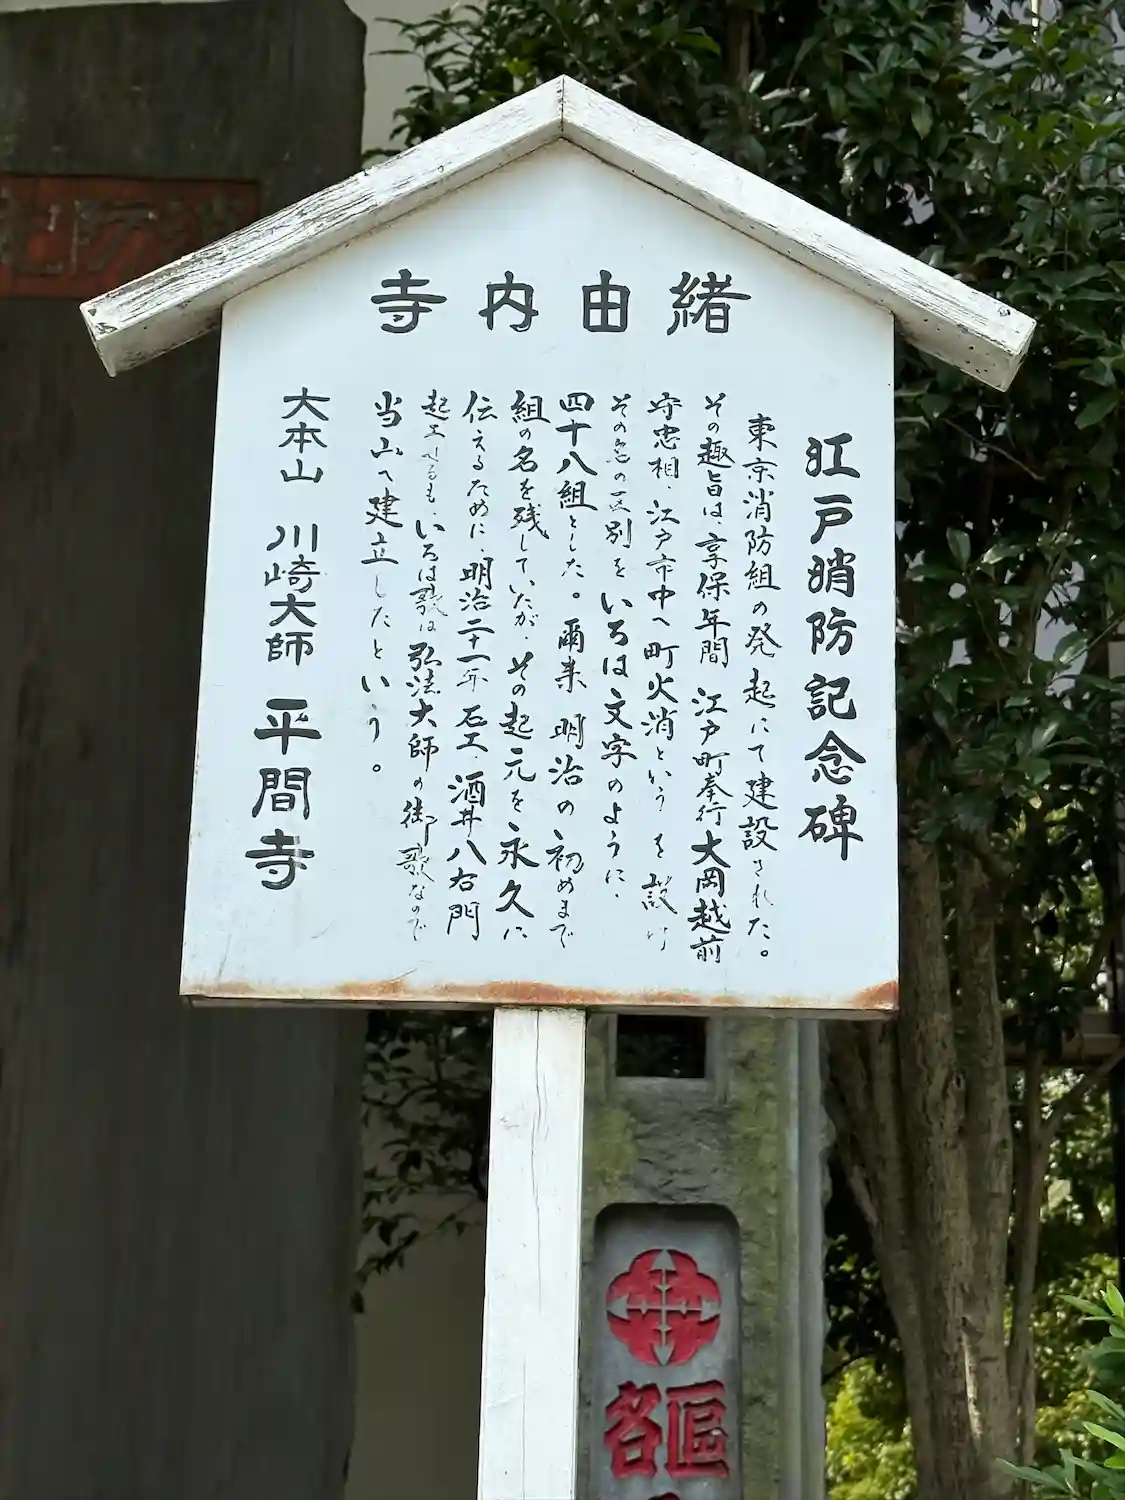 寺内由緒
江戸消防記念碑
東京消防組の発起にて建設された。
その趣旨は、享保年間 江戸町奉行 大岡越前
守忠相、江戸市中へ町火消というを設け
その区別をいろは文字のように、
四十八組とした。爾来 明治の初めまで
組の名を残していたが、その起元を永久に
伝えるために、明治二十一年 石工、酒井八右門
起工せるも、いろは歌は弘法大師の御歌なので
当山へ建立したという。
大本山 川崎大師 平間寺
區
各